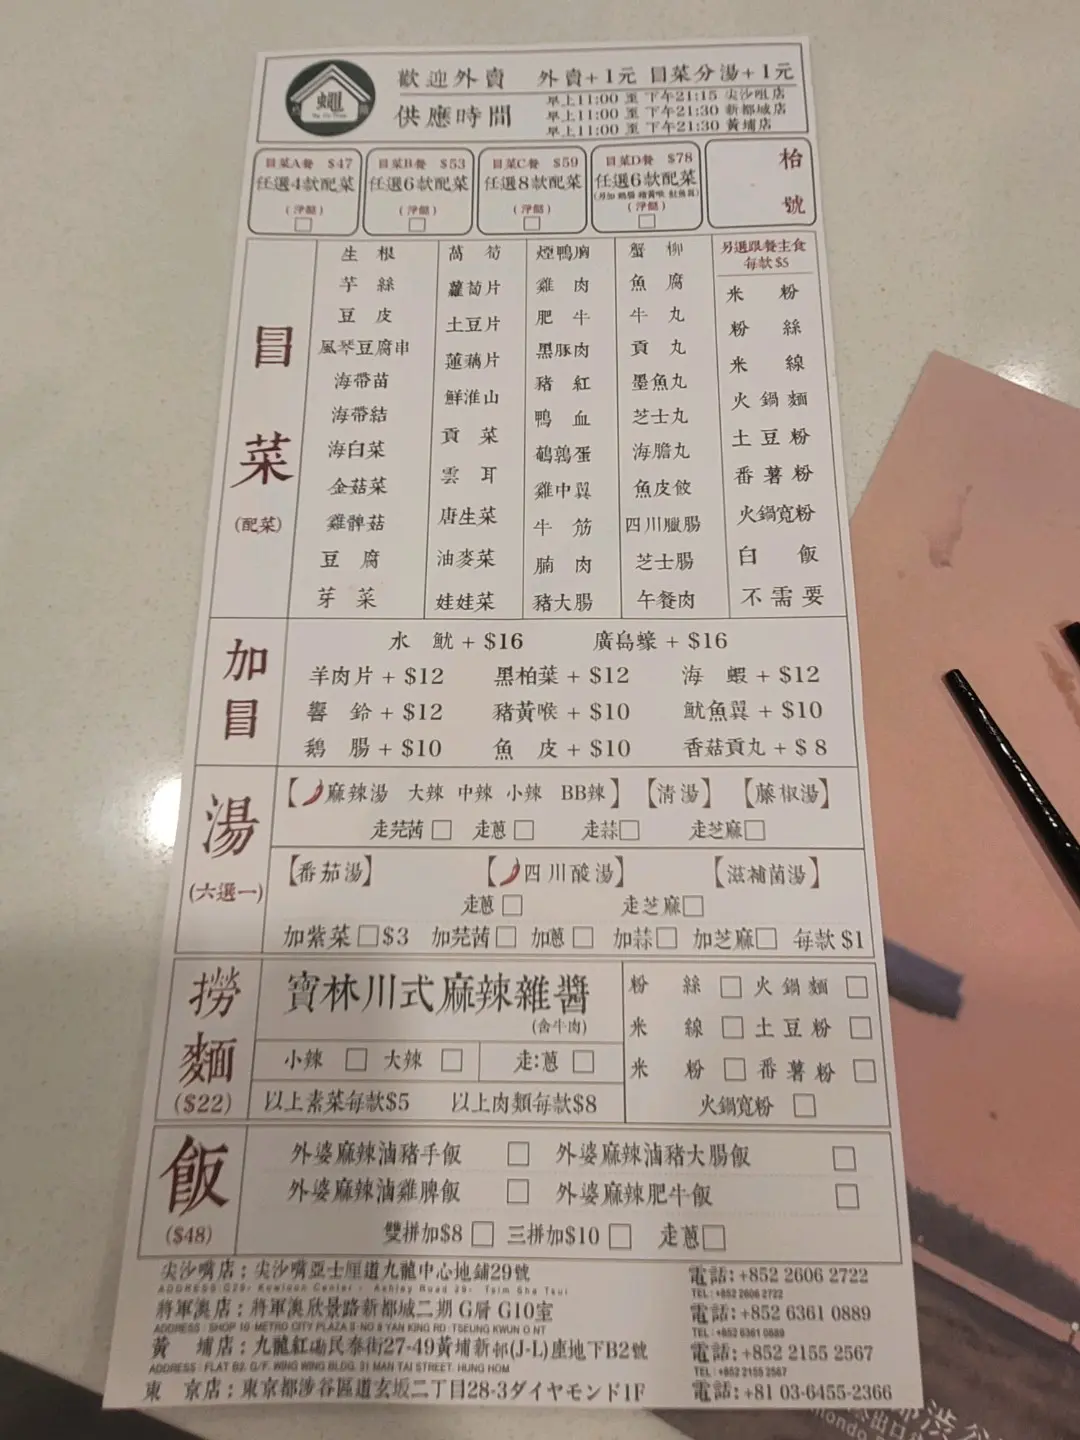 蠅
歡迎外賣 外賣+1元 冒菜分湯+1元
供應時間
早上11:00 至 下午21:15 尖沙咀店
早上11:00 至 下午21:30 新都城店
早上11:00 至 下午21:30 黃埔店
冒菜A餐 $47 冒菜B餐 $53 冒菜C餐 $59 冒菜D餐 $78 枱
任選4款配菜 任選6款配菜 任選8款配菜 任選6款配菜 號
(另加 鵝腸 豬黃喉 魷魚翼)
(淨餸) (淨餸) (淨餸) (淨餸)
冒菜
(配菜)
生根 萵筍 煙鴨胸 蟹柳 另選跟餐主食
每款$5
芋絲 蘿蔔片 雞肉 魚腐 米粉
豆皮 土豆片 肥牛 牛丸 粉絲
風琴豆腐串 蓮藕片 黑豚肉 貢丸 米線
海帶苗 鮮淮山 豬紅 墨魚丸 火鍋麵
海帶結 貢菜 鴨血 芝士丸 土豆粉
海白菜 雲耳 鵪鶉蛋 海膽丸 番薯粉
金菇菜 唐生菜 雞中翼 魚皮餃 火鍋寬粉
雞髀菇 油麥菜 牛筋 四川臘腸 白飯
豆腐 娃娃菜 腩肉 芝士腸 不需要
芽菜 豬大腸 午餐肉
加冒
水魷+$16 廣島蠔+$16
羊肉片+$12 黑柏葉+$12 海蝦+$12
響鈴+$12 豬黃喉+$10 魷魚翼+$10
鵝腸+$10 魚皮+$10 香菇貢丸+$8
湯
(六選一)
【麻辣湯 大辣 中辣 小辣 BB辣】 【清湯】 【藤椒湯】
走芫茜□ 走蔥□ 走蒜□ 走芝麻□
【番茄湯】 【四川酸湯】 【滋補菌湯】
走蔥□ 走芝麻□
加紫菜□$3 加芫茜□ 加蔥□ 加蒜□ 加芝麻□ 每款$1
撈麵
($22)
寶林川式麻辣雜醬
(含牛肉)
小辣 □ 大辣 □ 走:蔥 □
以上素菜每款$5 以上肉類每款$8
粉絲 □ 火鍋麵 □
米線 □ 土豆粉 □
米粉 □ 番薯粉 □
火鍋寬粉 □
飯
($48)
外婆麻辣滷豬手飯 □ 外婆麻辣滷豬大腸飯 □
外婆麻辣滷雞脾飯 □ 外婆麻辣肥牛飯 □
雙拼加$8 □ 三拼加$10 □ 走蔥□
尖沙嘴店:尖沙嘴亞士厘道九龍中心地鋪29號 電話:+852 2606 2722
TEL:+852 2606 2722
將軍澳店:將軍澳欣景路新都城二期 G層 G10室 電話:+852 6361 0889
ADDRESS:SHOP 10 METRO CITY PLAZA II·NO 8 YAN KING RD·TSEUNG KWUN O NT TEL:+852 6361 0889
黃埔店:九龍紅磡民泰街27-49黃埔新邨(J-L)座地下B2號 電話:+852 2155 2567
ADDRESS:FLAT B2, G/F, WING WING BLDG, 31 MAN TAI STREET, HUNG HOM TEL:+852 2155 2567
東京店:東京都涉谷區道玄坂二丁目28-3ダイヤモンド1F 電話:+81 03-6455-2366